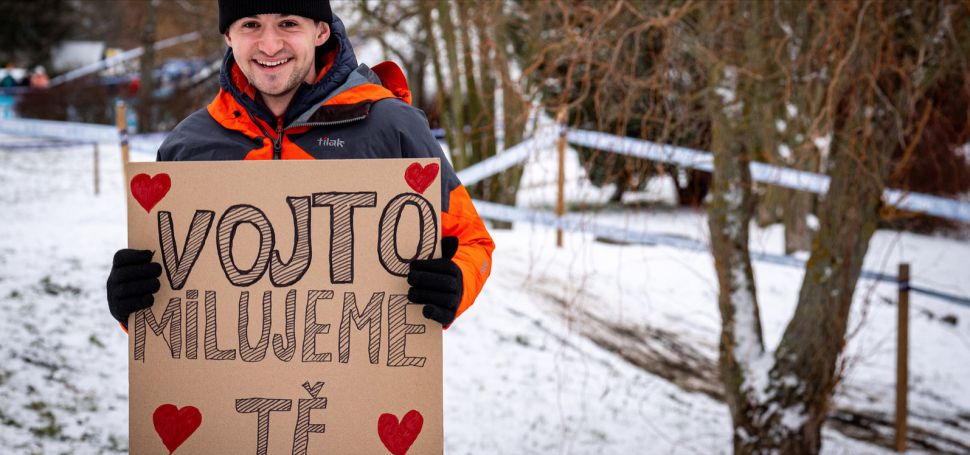 tilak
VOJTO
MILUJEME
TĚ